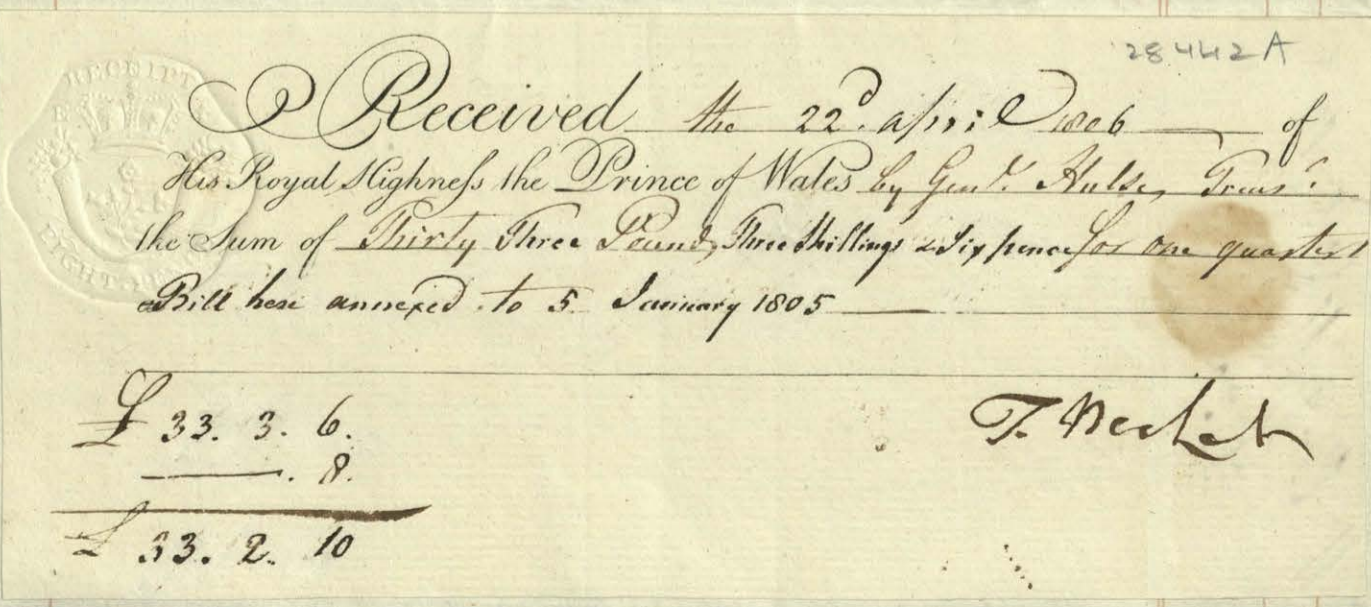 28442A
RECEIPT
EIGHT PE
Received the 22d. April 1806 of
His Royal Highness the Prince of Wales by Genl. Hulse, Treasr.
the Sum of Thirty Three Pound, Three Shillings & Six pence for one quarters
Bill here annexed to 5 January 1805
£ 33. 3. 6.
. 8.
£ 33. 2. 10
T. Becket